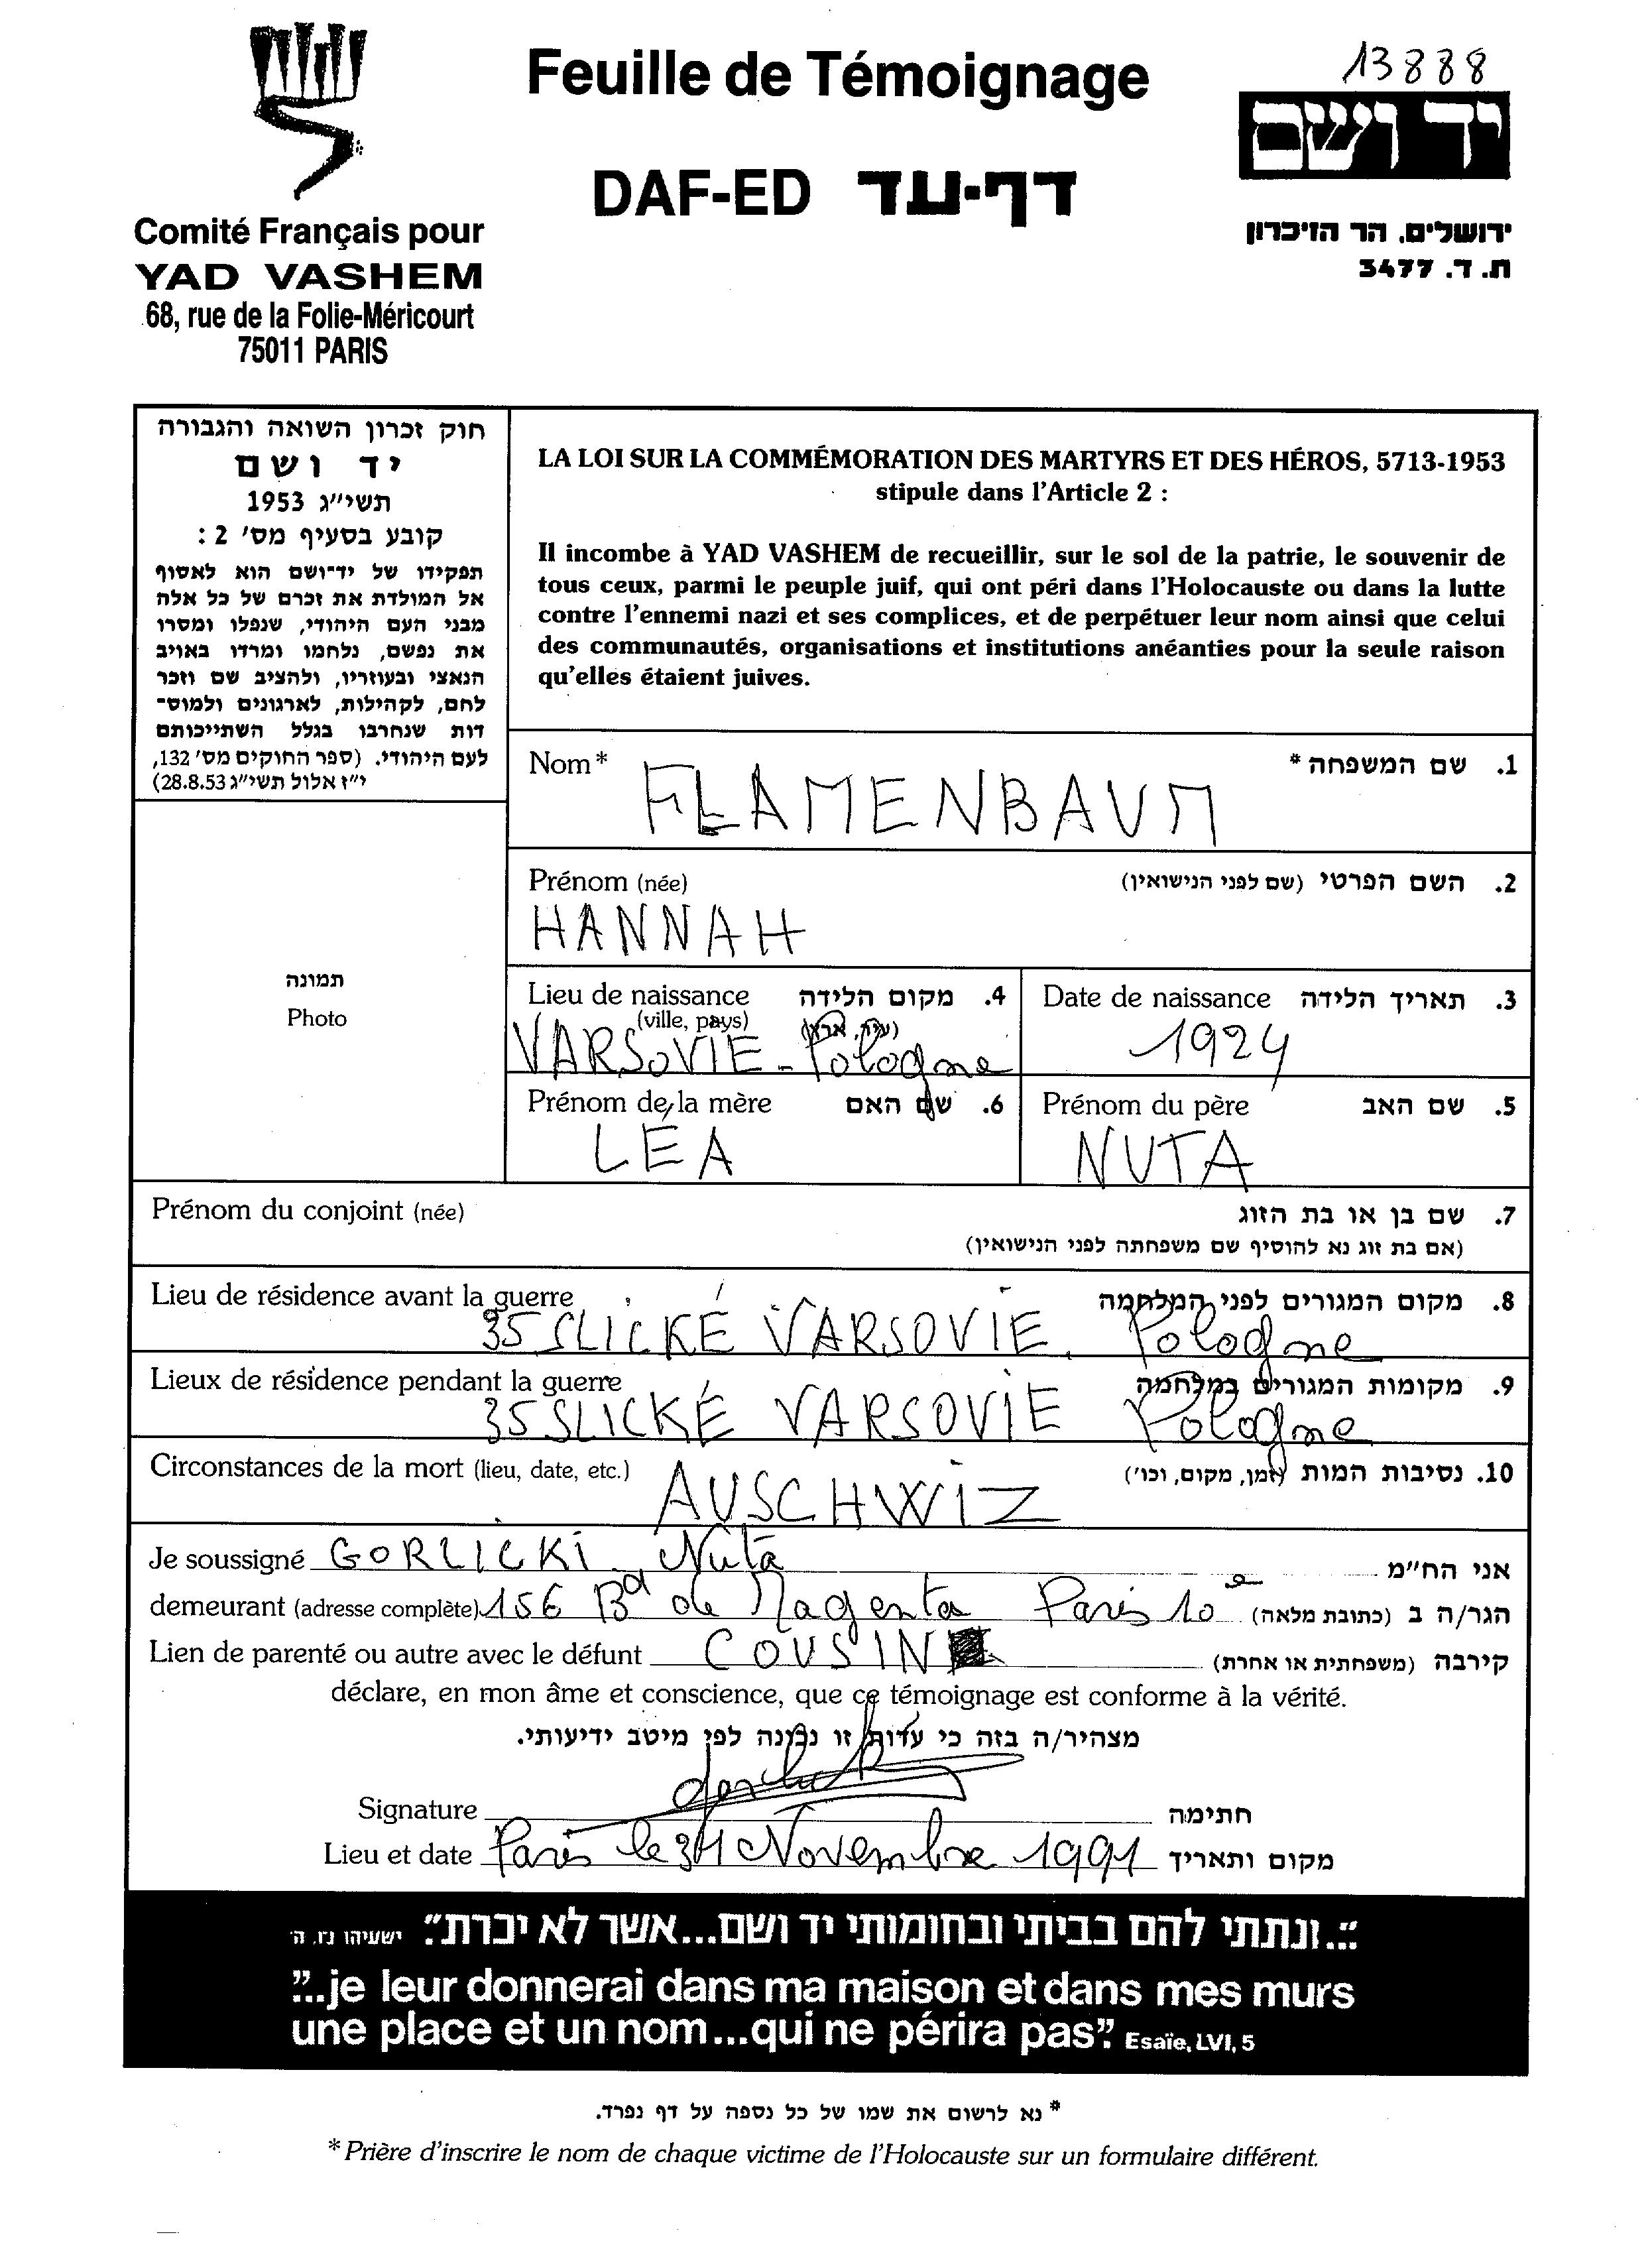 Feuille de Témoignage
13888
יד ושם
DAF-ED דף-עד
Comité Français pour
YAD VASHEM
68, rue de la Folie-Méricourt
75011 PARIS
ירושלים, הר הזיכרון
ת. ד. 3477
חוק זכרון השואה והגבורה
יד ושם
תשי״ג 1953
קובע בסעיף מס׳ 2 :
תפקידו של יד־ושם הוא לאסוף
אל המולדת את זכרם של כל אלה
מבני העם היהודי, שנפלו ומסרו
את נפשם, נלחמו ומרדו באויב
הנאצי ובעוזריו, ולהציב שם וזכר
להם, לקהילות, לארגונים ולמוס־
דות שנחרבו בגלל השתייכותם
לעם היהודי. (ספר החוקים מס׳ 132,
י״ז אלול תשי״ג 28.8.53)
LA LOI SUR LA COMMÉMORATION DES MARTYRS ET DES HÉROS, 5713-1953
stipule dans l'Article 2 :
Il incombe à YAD VASHEM de recueillir, sur le sol de la patrie, le souvenir de
tous ceux, parmi le peuple juif, qui ont péri dans l'Holocauste ou dans la lutte
contre l'ennemi nazi et ses complices, et de perpétuer leur nom ainsi que celui
des communautés, organisations et institutions anéanties pour la seule raison
qu'elles étaient juives.
Nom* 1. שם המשפחה *
FLAMENBAUM
Prénom (née) 2. השם הפרטי (שם לפני הנישואין)
HANNAH
תמונה
Photo
Lieu de naissance 4. מקום הלידה
(ville, pays) (עיר, ארץ)
VARSOVIE - Pologne
Date de naissance 3. תאריך הלידה
1924
Prénom de la mère 6. שם האם
LÉA
Prénom du père 5. שם האב
NUTA
Prénom du conjoint (née) 7. שם בן או בת הזוג
(אם בת זוג נא להוסיף שם משפחתה לפני הנישואין)
Lieu de résidence avant la guerre 8. מקום המגורים לפני המלחמה
35 SLICKÉ VARSOVIE. Pologne
Lieux de résidence pendant la guerre 9. מקומות המגורים במלחמה
35 SLICKÉ VARSOVIE Pologne
Circonstances de la mort (lieu, date, etc.) AUSCHWIZ 10. נסיבות המות (זמן, מקום, וכו׳)
Je soussigné GORLICKI Nuta אני הח״מ
demeurant (adresse complète) 156 Bd de Magenta Paris 10e הגר/ה ב (כתובת מלאה)
Lien de parenté ou autre avec le défunt COUSIN קירבה (משפחתית או אחרת)
déclare, en mon âme et conscience, que ce témoignage est conforme à la vérité.
מצהיר/ה בזה כי עדות זו נכונה לפי מיטב ידיעותי.
Signature חתימה
Lieu et date Paris le Novembre 1991 מקום ותאריך
״...ונתתי להם בביתי ובחומותי יד ושם...אשר לא יכרת״. ישעיהו נו, ה׳
"...je leur donnerai dans ma maison et dans mes murs
une place et un nom...qui ne périra pas". Esaïe, LVI, 5
* נא לרשום את שמו של כל נספה על דף נפרד.
* Prière d'inscrire le nom de chaque victime de l'Holocauste sur un formulaire différent.